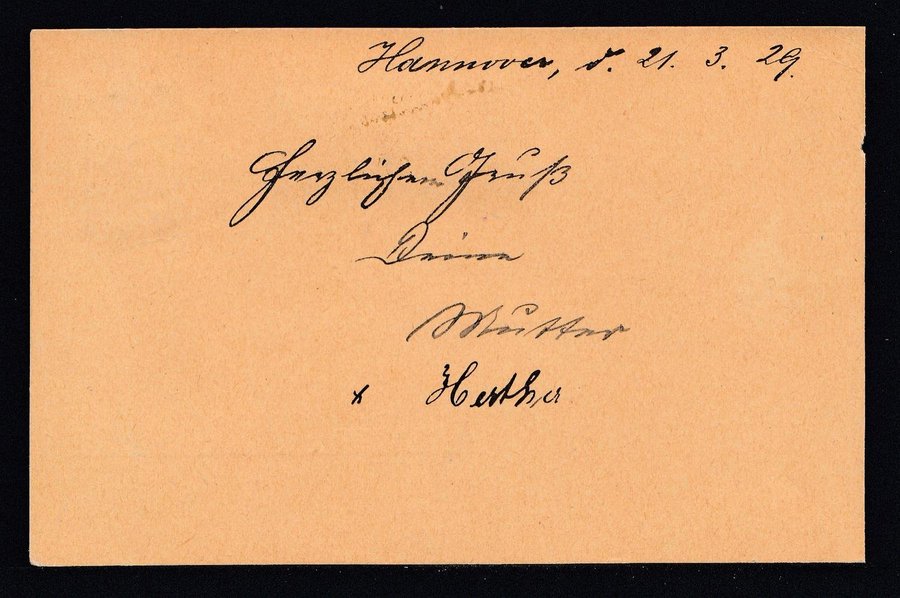 Hannover, d. 21. 3. 29.
Herzlichen Gruß
Deine
Mutter
Hertha